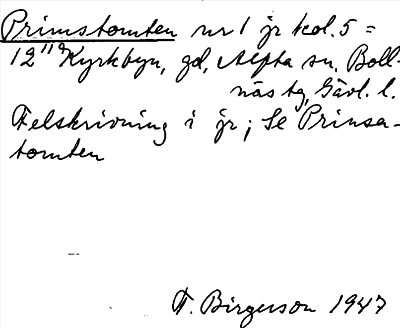 Primstomten nr 1 jr kol. 5 =
12¹¹⁹ Kyrkbyn, gd, Alfta sn, Boll-
näs tg, Gävl. l.
Felskrivning i jr; Se Prinsa-
tomten
T. Birgerson 1947